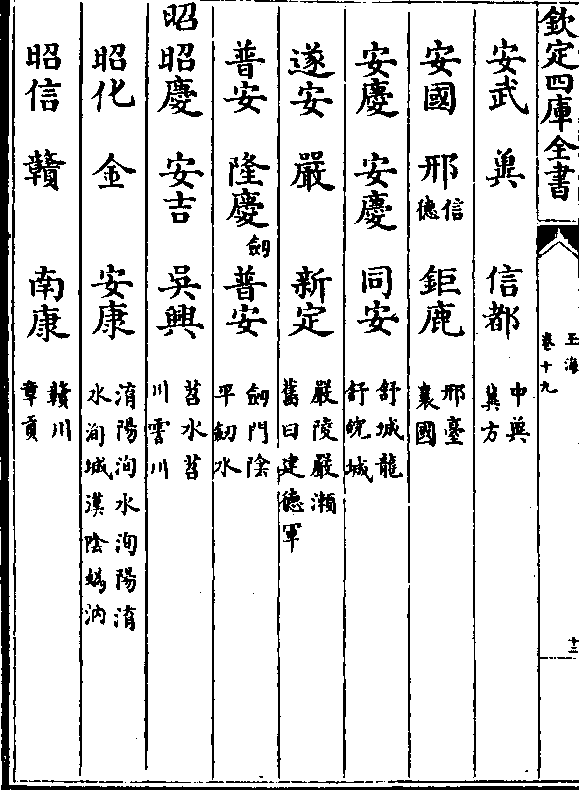 欽定四庫全書
玉海
卷十九
十三
安武 兾 信都 中兾兾方
安國 邢信德 鉅鹿 邢臺襄國
安慶 安慶 同安 舒城龍舒皖城
遂安 嚴 新定 嚴陵嚴瀬舊曰建德軍
普安 隆慶劔 普安 劔門隂平劒水
昭
昭慶 安吉 吳興 苕水苕川霅川
昭化 金 安康 淯陽洵水洵陽淯水洵城漢隂媯汭
昭信 贛 南康 贛川章貢